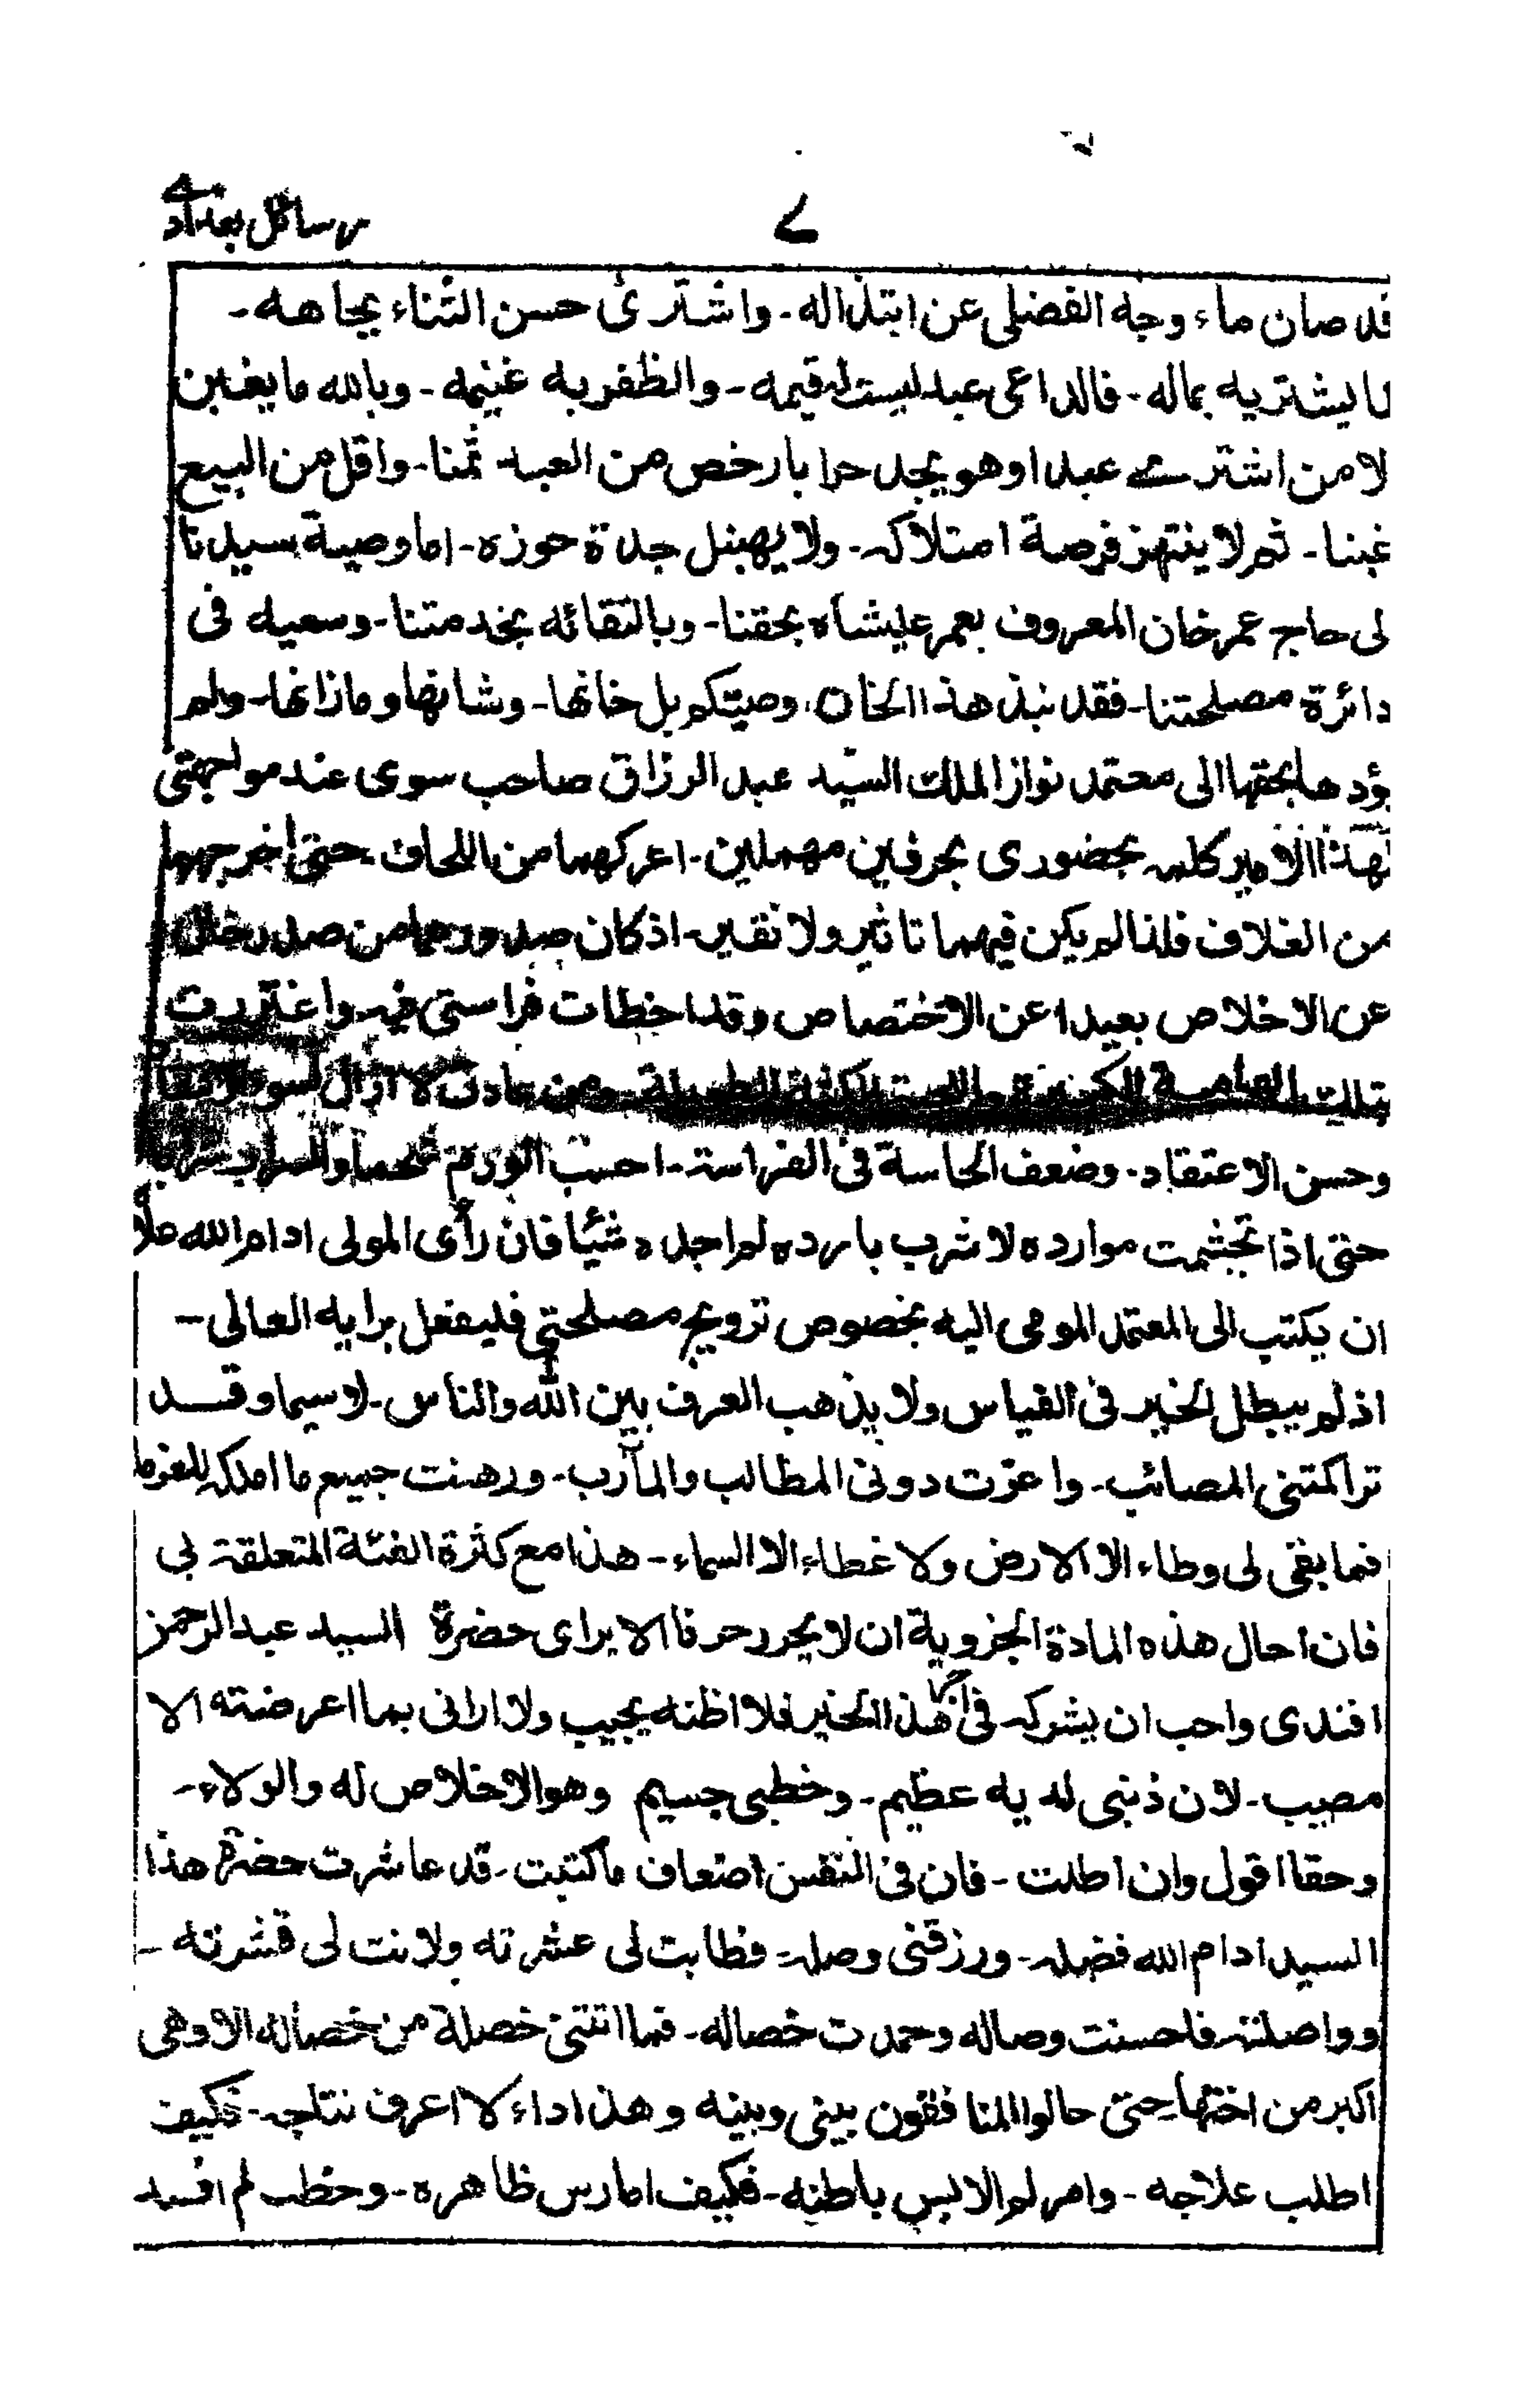 رسائل بغدادی
۷
قد صان ماء وجه الفضل عن ابتذاله - واشترى حسن الثناء بجاهه -
لا يشتريه بماله - فالداعى عبد ليست له قيمه - والظفر به غنيمه - وبالله ما يغبن
لا من اشترے عبدا وهو يجد حرا بارخص من العبد ثمنا - واقل من البيع
غبنا - ثم لا ينتهز فرصة امتلاكه - ولا يهبنل جدة حوزه - اما وصية سيدنا
لى حاج عمر خان المعروف بعمر عليشاه بحقنا - وبالتقائه بخدمتنا - وسعيه فى
دائرة مصلحتنا - فقد نبذ هذا الخان وصيتكم بل خانها - وشانها وما زانها - ولم
يؤدها بحقها الى معتمد نواز الملك السيد عبد الرزاق صاحب سوى عند مواجهتى
لهذا الامير كلمه بحضورى بحرفين مهملين - اعركهما من اللحاف - حتى اخرجهما
من الغلاف فلذا لم يكن فيهما تاثير ولا نقير - اذ كان صدورهما من صدر خال
عن الاخلاص بعيدا عن الاختصاص وقد اخطات فراستى فيه واغتررت
بتلك العمامة الكبيرة واللحية الكثة الطويلة - ومن عادتى لا ازال لسوء
وحسن الاعتقاد - وضعف الحاسة فى الفراسة - احسب الورم شحما والسراب
حتى اذا تجشمت موارده لاشرب بارده لم اجده شيئا فان رأى المولى ادام الله علاه
ان يكتب الى المعتمد المومى اليه بخصوص ترويج مصلحتى فليفعل برايه العالى -
اذ لم يبطل الخير فى القياس ولا يذهب العرف بين الله والناس - لا سيما وقد
تراكمتنى المصائب - واعزت دونى المطالب والمآرب - ورهنت جميع ما املكه للغرما
فما بقى لى وطاء الا الارض ولا غطاء الا السماء - هذا مع كثرة الفئة المتعلقة بى
فان احال هذه المادة الجزوية ان لا يحرر حرفا الا براى حضرة السيد عبد الرحمن
افندى واحب ان يشركه فى هذا الخير فلا اظنه يجيب ولا ارانى بما اعرضته الا
مصيب - لان ذنبى لديه عظيم - وخطبى جسيم وهو الاخلاص له والولاء -
وحقا اقول وان اطلت - فان فى النفس اضعاف ما كتبت - قد عاشرت حضرة هذا
السيد ادام الله فضله - ورزقنى وصله - فطابت لى عشرته ولانت لى قشرته -
وواصلته فاحسنت وصاله وحمدت خصاله - فما اتتنى خصلة من خصاله الا وهى
اكبر من اختها حتى حالوا المنافقون بينى وبينه وهذا داء لا اعرف نتاجه - فكيف
اطلب علاجه - وامر لم الابس باطنه - فكيف امارس ظاهره - وخطب لم افسد